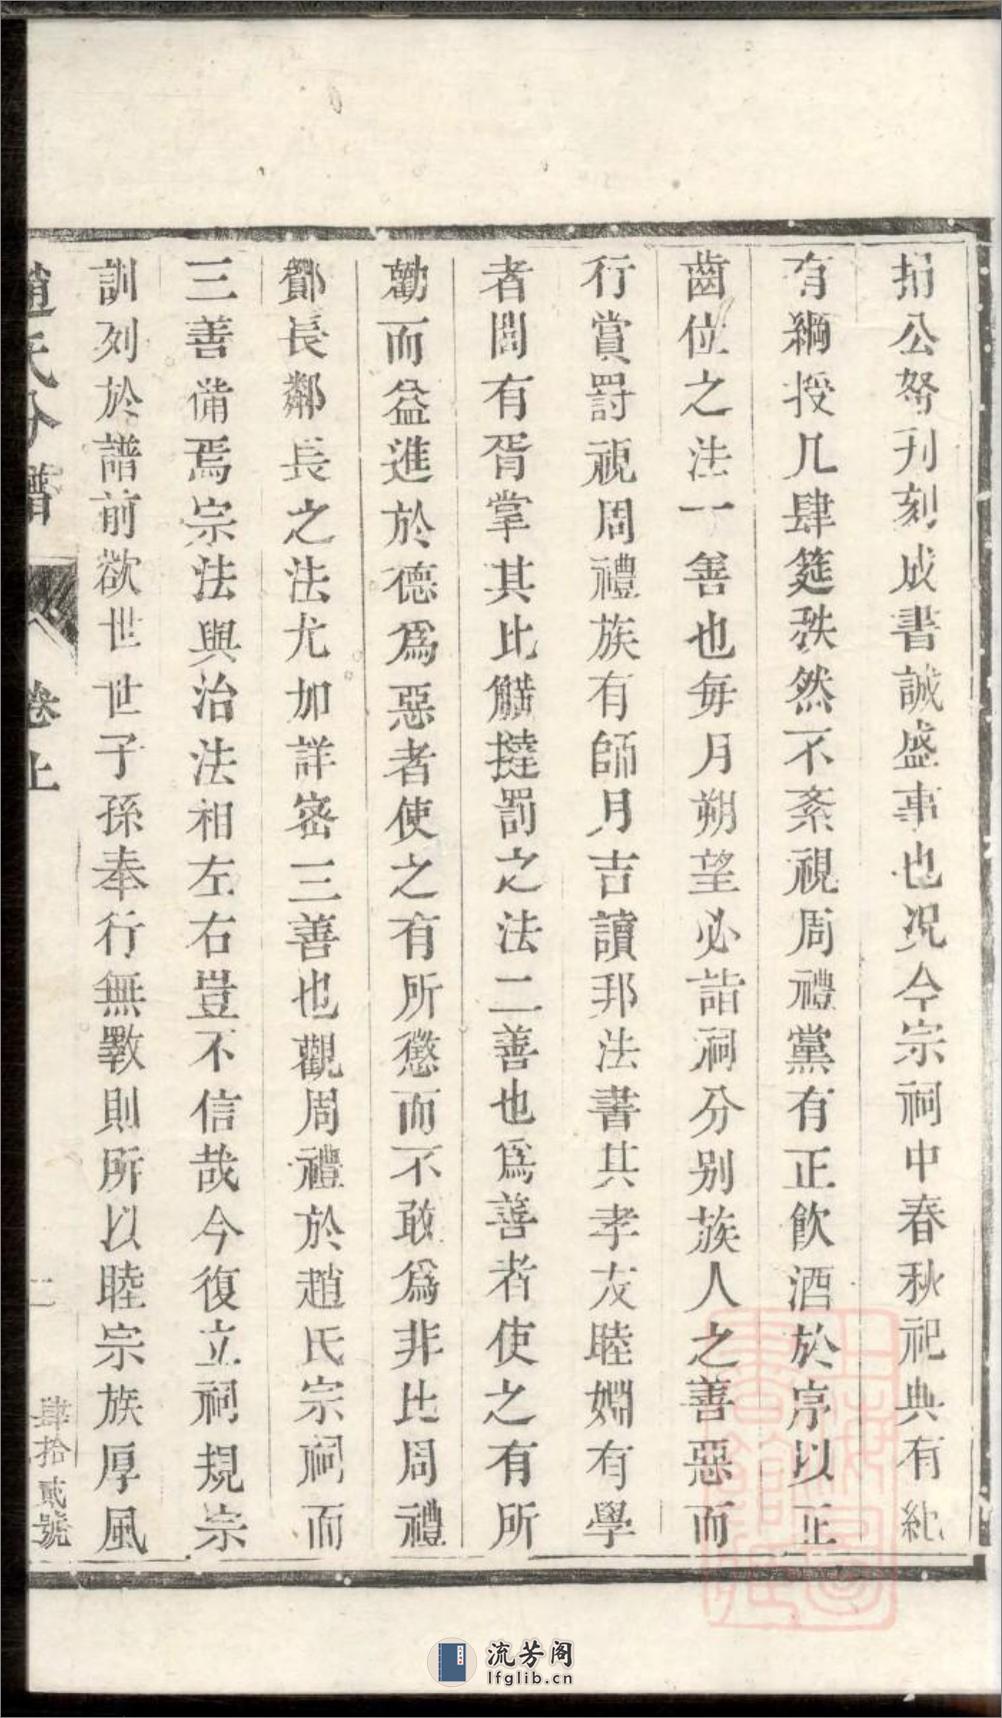 捐公帑刊刻成書誠盛事也况今宗祠中春秋祀典有紀
有綱授几肆筵秩然不紊視周禮黨有正飲酒於序以正
齒位之法一善也每月朔望必詣祠分别蔟人之善惡而
行賞罰視周禮族有師月吉讀邦法書其孝友睦婣有學
者閭有胥掌其比觵撻罰之法二善也爲善者使之有所
勸而益進於德爲惡者使之有所懲而不敢爲非比周禮
酇長鄰長之法尤加詳密三善也觀周禮於趙氏宗祠而
三善備焉宗法與治法相左右豈不信哉今復立祠規宗
訓列於譜前欲世世子孫奉行無斁則所以睦宗族厚風
趙氏分譜
卷上
二
肆拾貳號
流芳阁
lfglib.cn